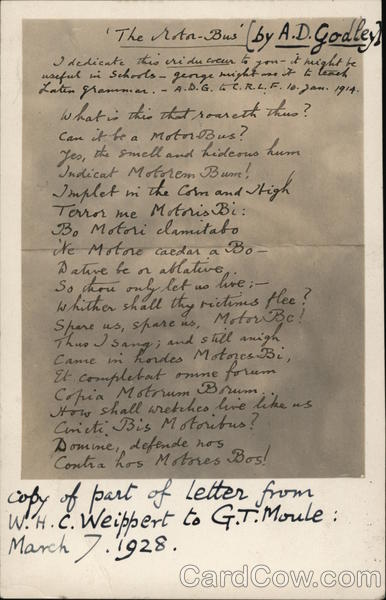 'The Motor-Bus' [by A.D. Godley]
I dedicate this cri du coeur to you - it might be
useful in Schools - george might use it to teach
Latin Grammar. - A.D.G. to C.R.L.F. 10. Jan. 1914.
What is this that roareth thus?
Can it be a Motor Bus?
Yes, the smell and hideous hum
Indicat Motorem Bum!
Implet in the Corn and High
Terror me Motoris Bi:
Bo Motori clamitabo
Ne Motore caedar a Bo -
Dative be or ablative
So thou only let us live: -
Whither shall thy victims flee?
Spare us, spare us, Motor Be!
Thus I sang; and still anigh
Came in hordes Motores Bi,
Et complebat omne forum
Copia Motorum Borum.
How shall wretches live like us
Cincti Bis Motoribus?
Domine, defende nos
Contra hos Motores Bos!
copy of part of letter from
W.H.C. Weippert to G.T. Moule:
March 7. 1928.
CardCow.com